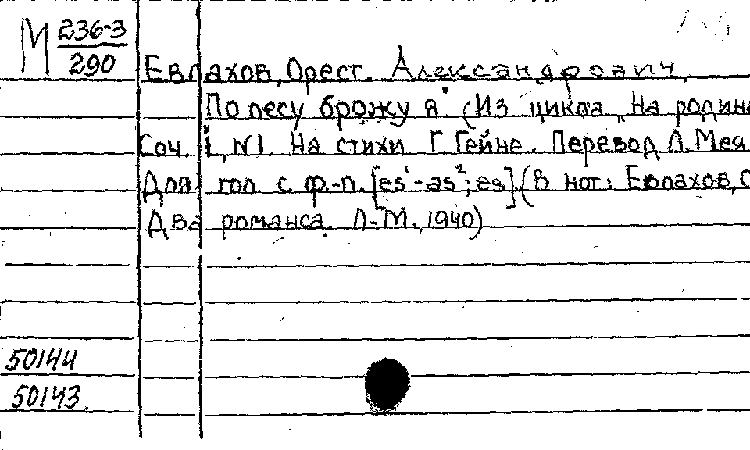 М 236-3
290
Евлахов, Орест Александрович.
„По лесу брожу я" (Из цикла „На родине
Соч. 1, №1. На стихи Г. Гейне. Перевод Л. Мея
Для гол. с ф.-п. [es¹-as²; es] (В нот: Евлахов, О
Два романса. Л.-М., 1940)
50144
50143.